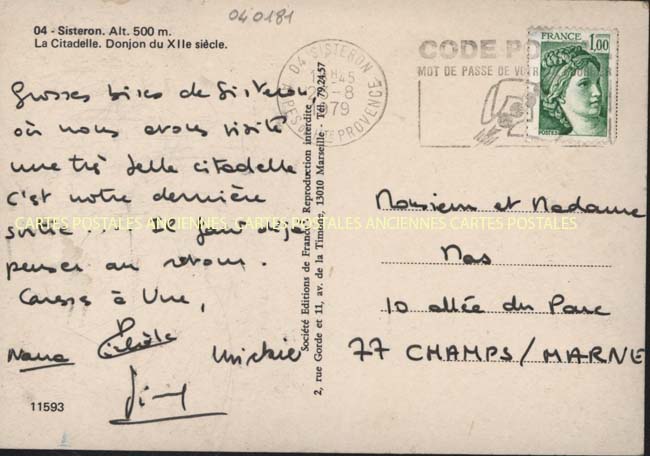 040181
04 - Sisteron. Alt. 500 m.
La Citadelle. Donjon du XIIe siècle.
Grosses bises de Sisteron
où nous avons visité
une très belle citadelle
c'est notre dernière
sortie ... Il faut déjà
penser au retour.
à
Nana
11593
Société Editions de France - Reproduction interdite
2, rue Gorde et 11, av. de la Timone, 13010 Marseille - Tél. 79.24.57
04 SISTERON
45
-8
1979
PROVENCE
CODE PO
MOT DE PASSE DE VOTR
FRANCE
1,00
POSTES
Monsieur et Madame
Nos
10 allée du Parc
77 CHAMPS/MARNE
CARTES POSTALES ANCIENNES CARTES POSTALES ANCIENNES CARTES POSTALES